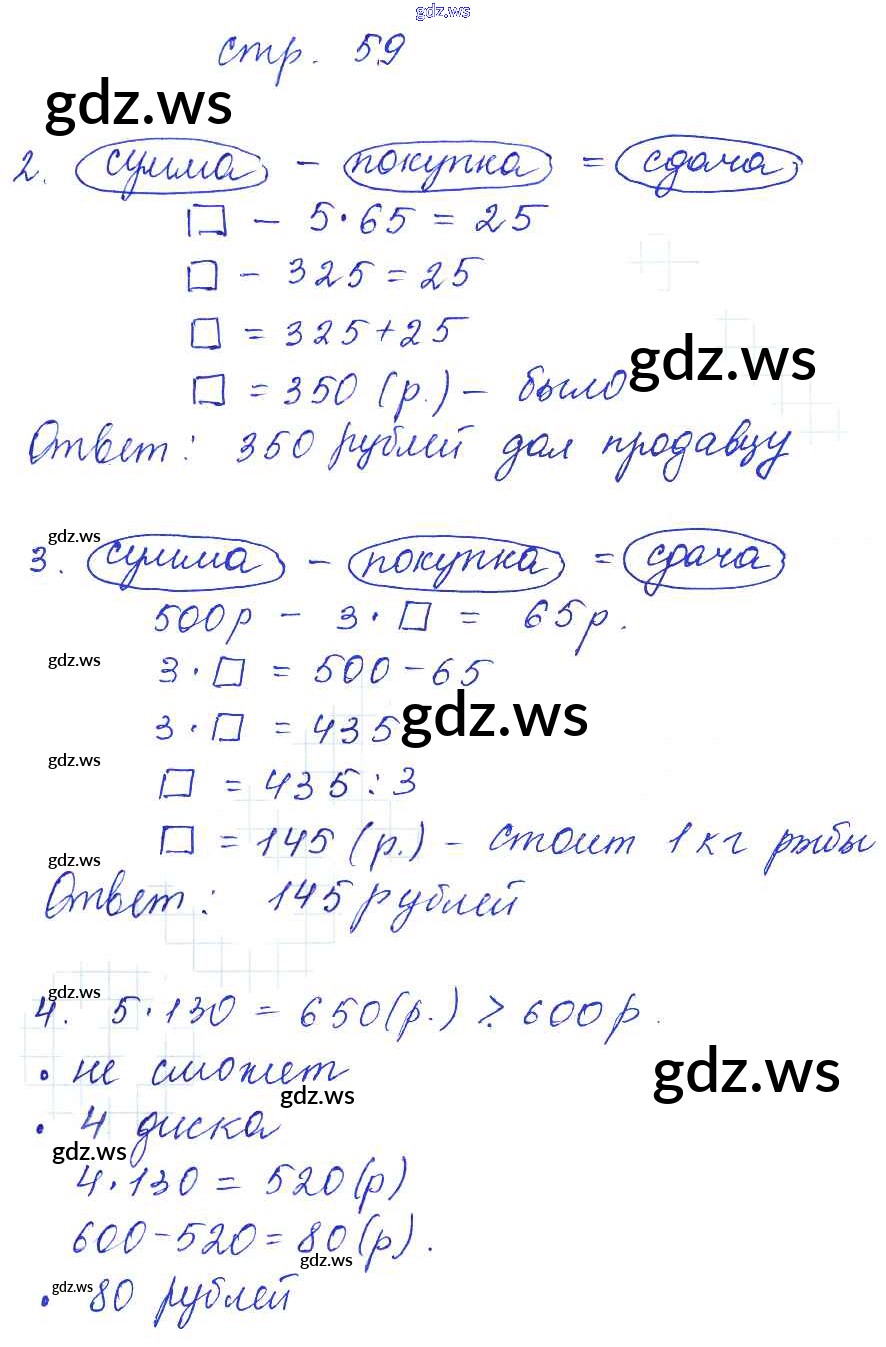 gdz.ws
стр. 59
gdz.ws
2. сумма - покупка = сдача
□ - 5·65 = 25
□ - 325 = 25
□ = 325+25
gdz.ws
□ = 350 (р.) - было
Ответ: 350 рублей дал продавцу
gdz.ws
3. сумма - покупка = сдача
500р - 3·□ = 65р.
gdz.ws
3·□ = 500-65
3·□ = 435
gdz.ws
gdz.ws
□ = 435:3
□ = 145 (р.) - стоит 1 кг рыбы
gdz.ws
Ответ: 145 рублей
gdz.ws
4. 5·130 = 650(р.) > 600р.
• не сможет
gdz.ws
gdz.ws
• 4 диска
gdz.ws
4·130 = 520(р)
600-520=80(р).
gdz.ws
gdz.ws
• 80 рублей